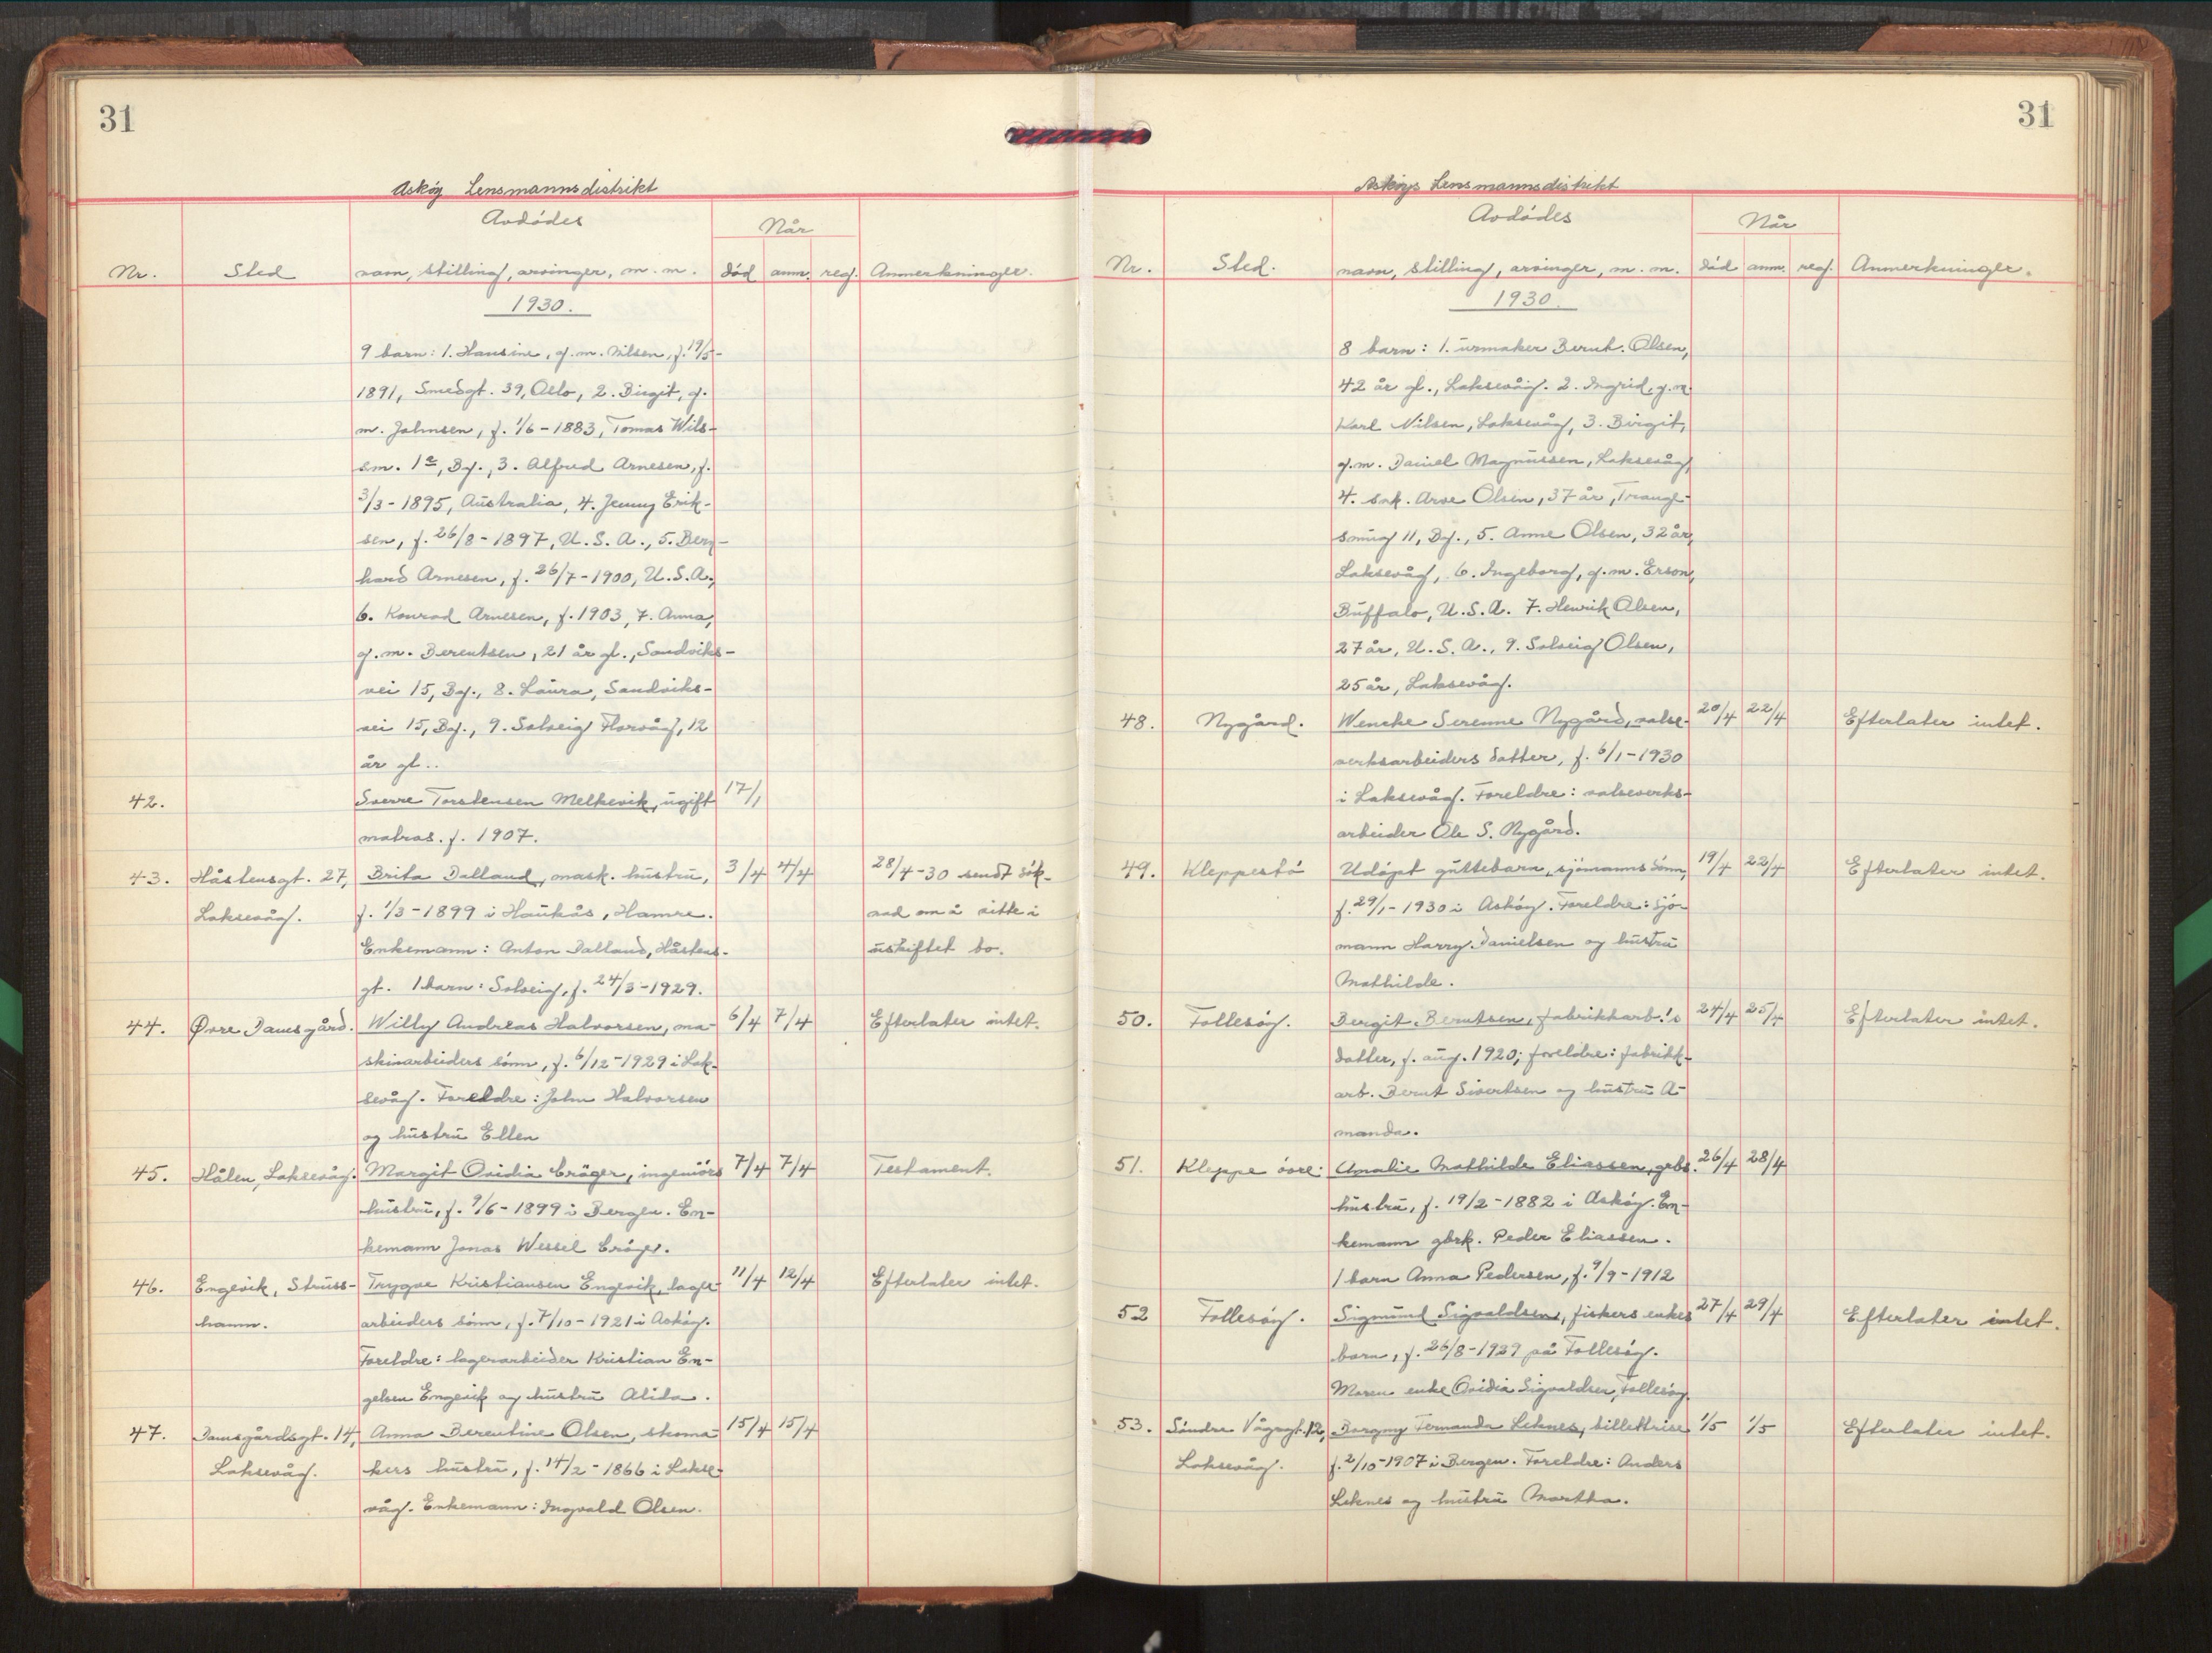 31
Askøy Lensmannsdistrikt
Avdødes
Når
Nr. Sted navn, stilling, arvinger, m. m. død anm. reg. Anmerkninger.
1930.
9 barn: 1. Hansine, g. m. Nilsen, f. 19/5-
1891, Smedgt. 39, Oslo, 2. Birgit, g.
m. Johnsen, f. 1/6-1883, Tomas Wils-
sm. 1a, Bg., 3. Alfred Arnesen, f.
3/3-1895, Australia, 4. Jenny Erik-
sen, f. 26/8-1897, U. S. A., 5. Bern-
hard Arnesen, f. 26/7-1900, U. S. A.,
6. Konrad Arnesen, f. 1903, 7. Anna,
g. m. Berentsen, 21 år gl., Sandviks-
vei 15, Bg., 8. Laura, Sandviks-
vei 15, Bg., 9. Solveig Florvåg, 12
år gl..
42. Sverre Torstensen Melkevik, ugift 17/1
matros. f. 1907.
43. Håstensgt. 27, Brita Dalland, mask. hustru, 3/4 4/4 28/4-30 sendt søk-
Laksevåg. f. 1/3-1899 i Haukås, Hamre. nad om å sitte i
Enkemann: Anton Dalland, Håstens- uskiftet bo.
gt. 1 barn: Solveig, f. 24/3-1929.
44. Øvre Damsgård. Willy Andreas Halvorsen, ma- 6/4 7/4 Efterlater intet.
skinarbeiders sønn, f. 6/12-1929 i Lak-
sevåg. Foreldre: John Halvorsen
og hustru Ellen
45. Hålen, Laksevåg. Margit Ovidia Crøger, ingeniørs 7/4 7/4 Testament.
hustru, f. 9/6-1899 i Bergen. En-
kemann Jonas Wessel Crøger.
46. Engevik, Struss- Trygve Kristiansen Engevik, lager- 11/4 12/4 Efterlater intet.
hamn. arbeiders sønn, f. 7/10-1921 i Askøy.
Foreldre: lagerarbeider Kristian En-
gelsen Engevik og hustru Alida.
47. Damsgårdsgt. 14, Anna Berentine Olsen, skoma- 15/4 15/4
Laksevåg. kers hustru, f. 14/2-1866 i Lakse-
våg. Enkemann: Ingvald Olsen.
31
Askøys Lensmannsdistrikt
Avdødes
Når
Nr. Sted. navn, stilling, arvinger, m. m. død anm. reg. Anmerkninger.
1930.
8 barn: 1. urmaker Bernt. Olsen,
42 år gl., Laksevåg. 2. Ingrid, g. m.
Karl Nilsen, Laksevåg, 3. Birgit,
g. m. Daniel Magnussen, Laksevåg,
4. Arve Olsen, 37 år, Trange-
smug 11, Bg., 5. Anne Olsen, 32 år,
Laksevåg, 6. Ingeborg, g. m. Erson,
Buffalo, U. S. A. 7. Henrik Olsen,
27 år, U. S. A., 9. Solveig Olsen,
25 år, Laksevåg.
48. Nygård. Wenche Serenne Nygård, valse- 20/4 22/4 Efterlater intet.
verksarbeiders datter, f. 6/1-1930
i Laksevåg. Foreldre: valseverks-
arbeider Ole S. Nygård.
49. Kleppestø Udøpt guttebarn, sjømanns sønn, 19/4 22/4 Efterlater intet.
f. 29/1-1930 i Askøy. Foreldre: sjø-
mann Harry Danielsen og hustru
Mathilde.
50. Follesøy. Bergit Berntsen, fabrikkarb.'s 24/4 25/4 Efterlater intet.
datter, f. aug. 1920; foreldre: fabrikk-
arb. Bernt Sivertsen og hustru A-
manda.
51. Kleppe øvre: Amalie Mathilde Eliassen, gbs. 26/4 28/4
hustru, f. 19/2-1882 i Askøy. En-
kemann gbrk. Peder Eliassen.
1 barn Anna Pedersen, f. 9/9-1912
52 Follesøy. Sigmund Sigvaldsen, fiskers enkes 27/4 29/4 Efterlater intet.
barn, f. 26/8-1929 på Follesøy.
Moren enke Ovidia Sigvaldsen, Follesøy.
53. Søndre Vågsgt. 12, Borgny Fernanda Leknes, billettrise 1/5 1/5 Efterlater intet.
Laksevåg. f. 2/10-1907 i Bergen. Foreldre: Anders
Leknes og hustru Martha.